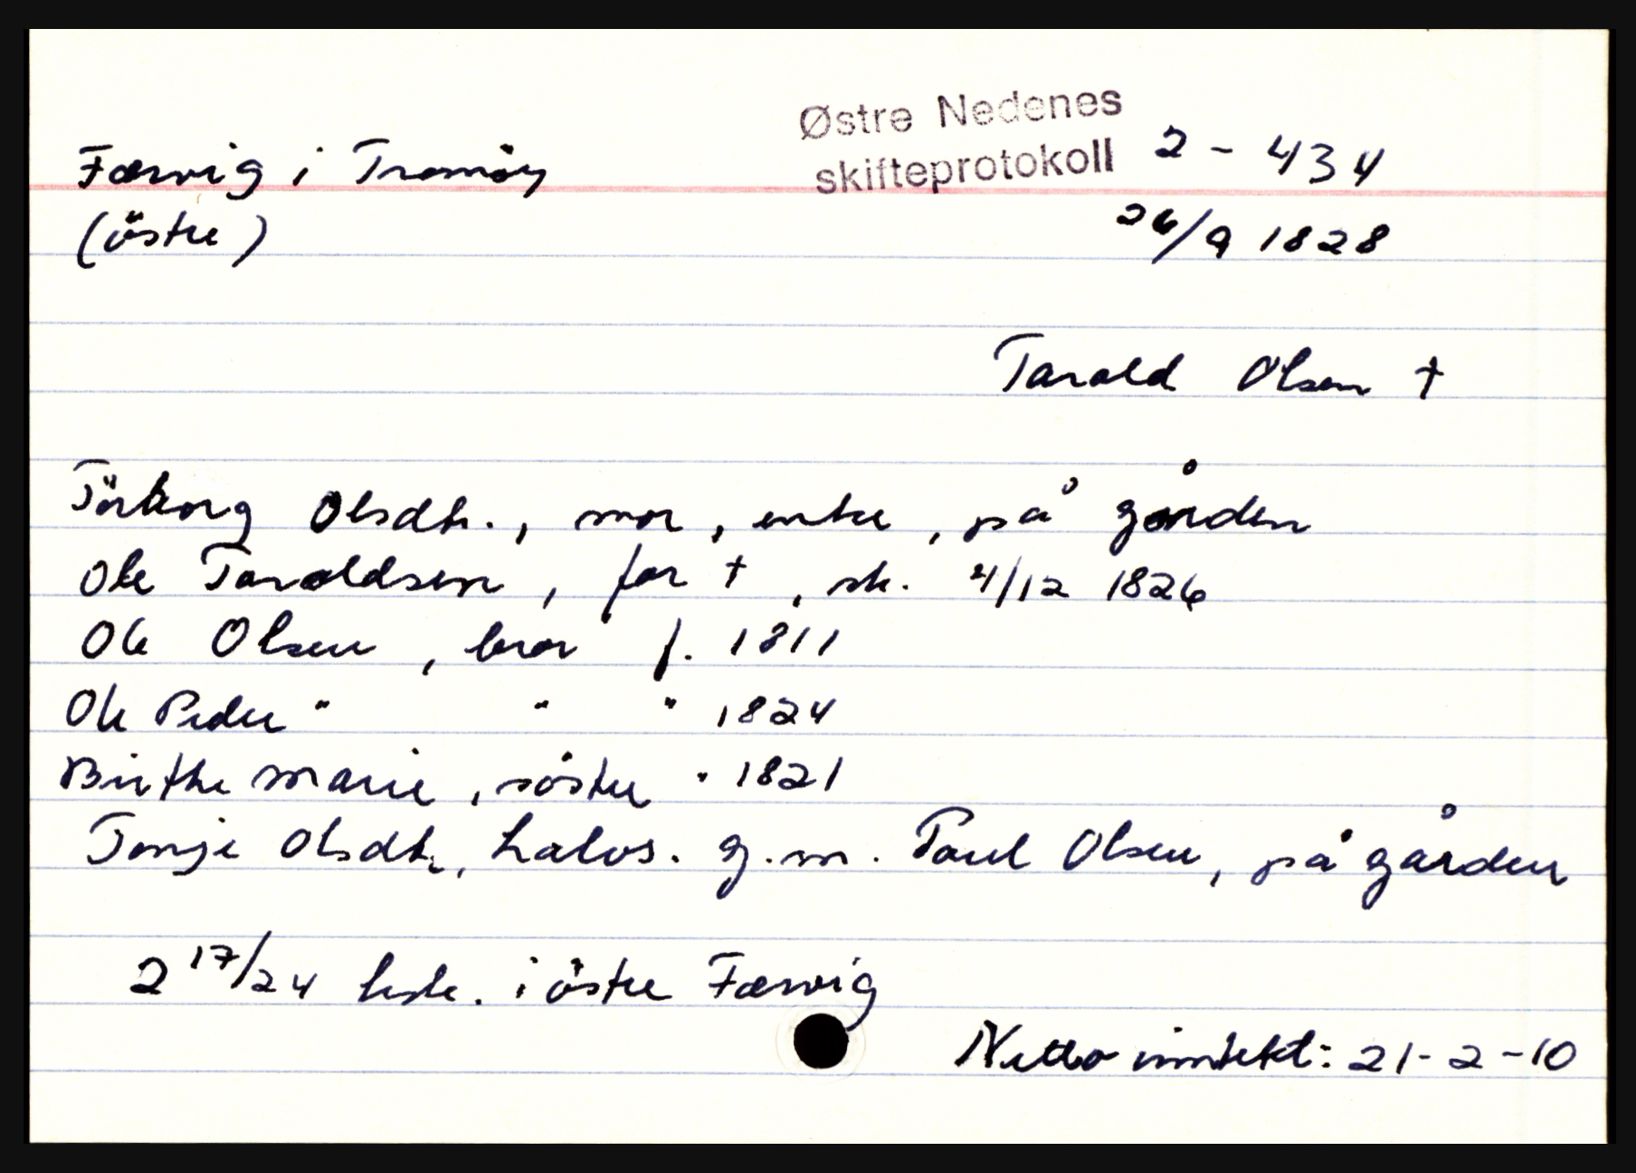 Færvig i Tromöy
(östre)
Østre Nedenes
skifteprotokoll 2 - 434
26/9 1828
Tarald Olsen †
Törborg Olsdtr., mor, enke, på gården
Ole Taraldsen, far †, sk. 4/12 1826
Ole Olsen, bror f. 1811
Ole Peder " " " 1824
Birthe Marie, söster " 1821
Tonje Olsdtr., halvs. g.m. Paul Olsen, på gården
2 17/24 hde. i östre Færvig
Netto inntekt: 21-2-10